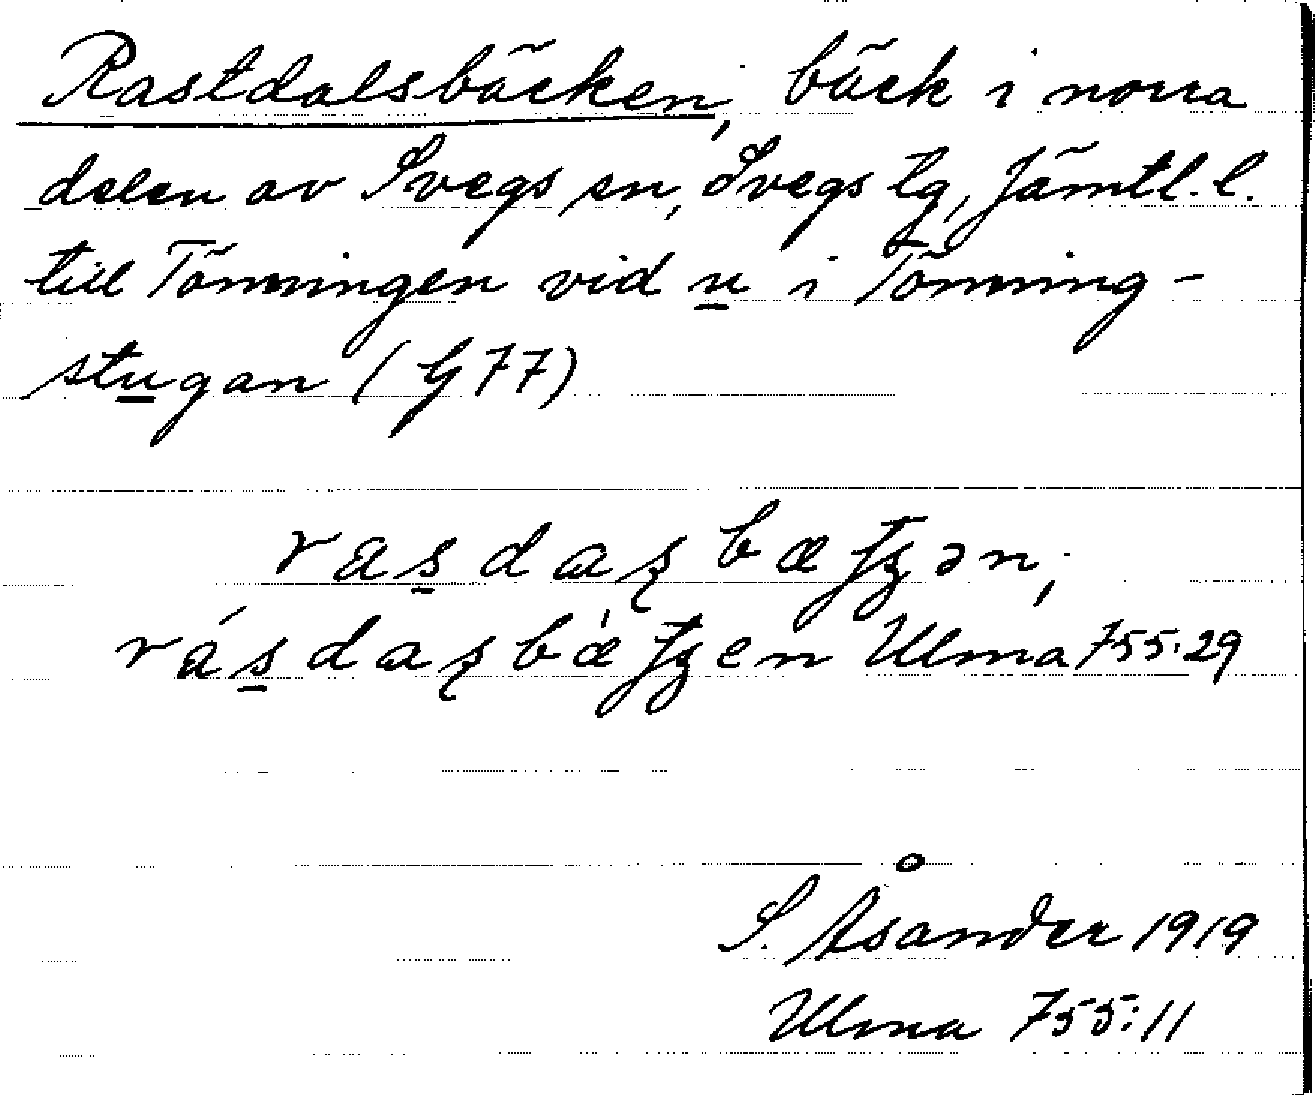 Rastdalsbäcken, bäck i norra
delen av Svegs sn, Svegs tg, Jämtl. l.
till Tönningen vid u i Tönning-
stugan (G77)
S. Åsander 1919
Ulma 755:11
Ulma 755:29